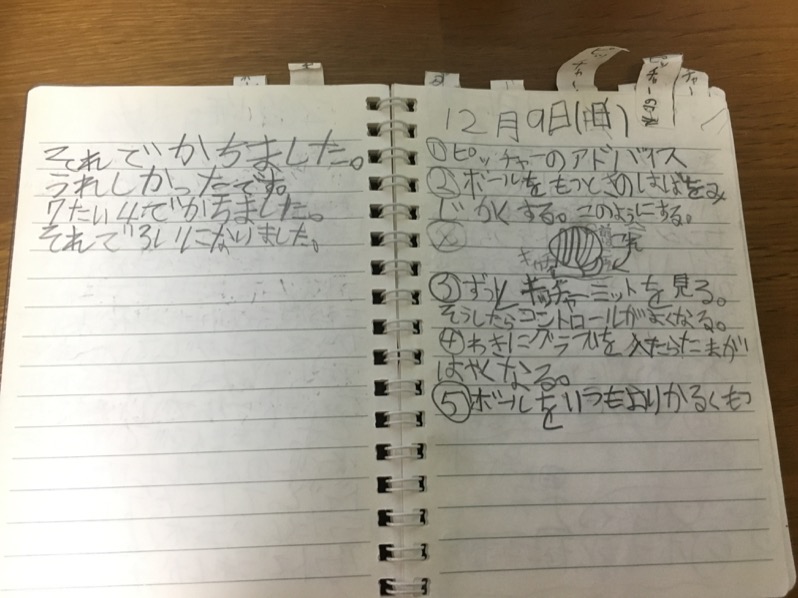 それでかちました。
うれしかったです。
7たい4でかちました。
それで3いになりました。
12月9日(日)
①ピッチャーのアドバイス
②ボールをもつときのはばをみ
じかくする。このようにする。
③ずっとキャッチャーミットを見る。
そうしたらコントロールがよくなる。
④わきにグラブを入れたらたまが
はやくなる。
⑤ボールをいつもよりかるくもつ
と